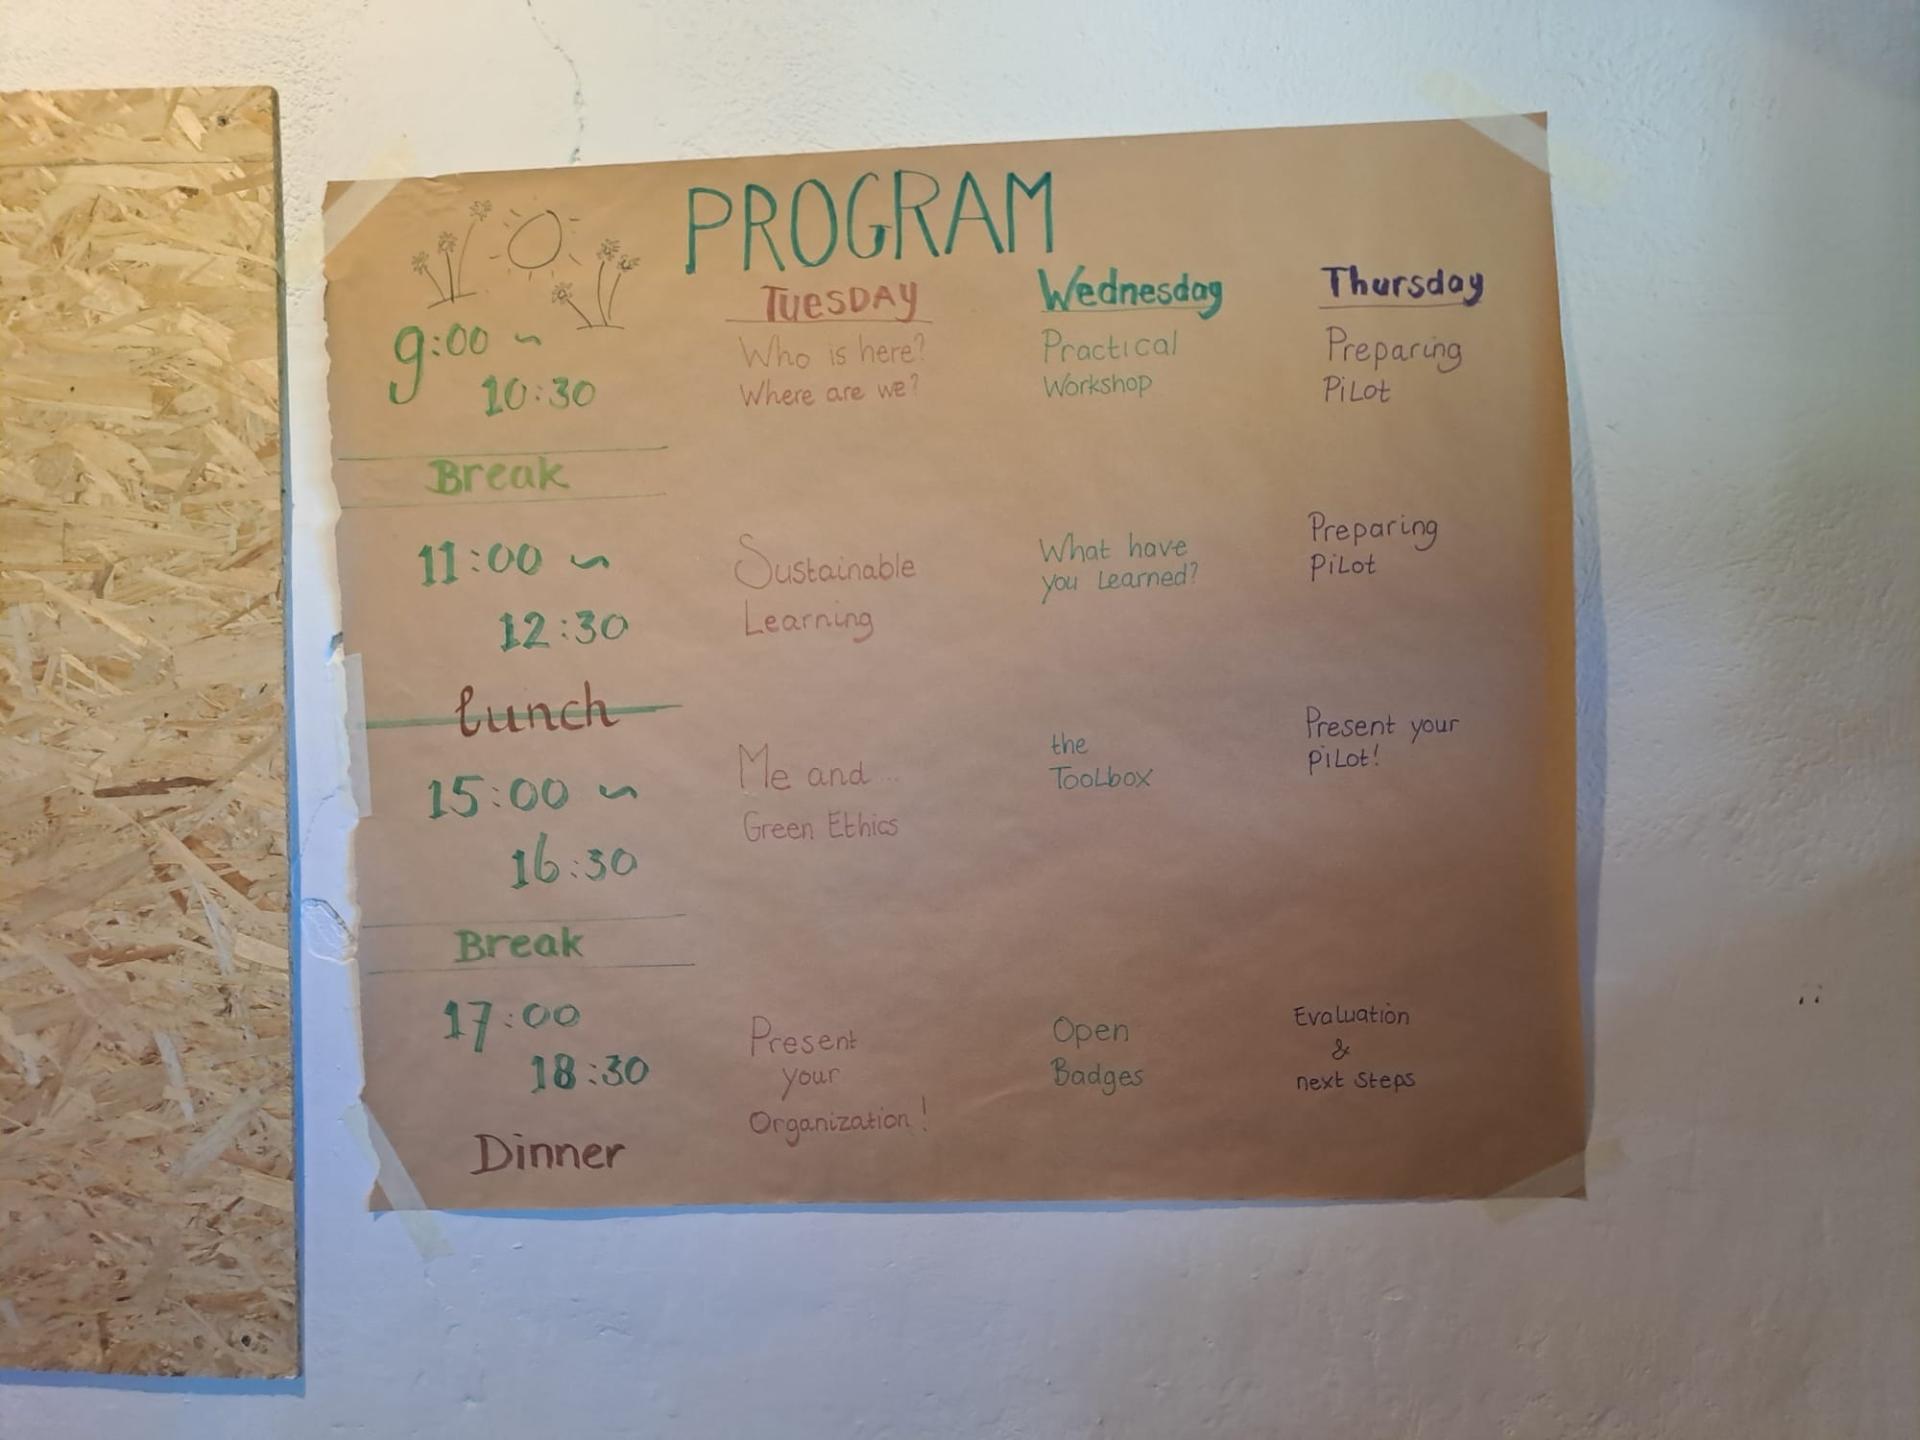 PROGRAM
TUESDAY Wednesday Thursday
9:00 ~
10:30
Who is here?
Where are we?
Practical
Workshop
Preparing
PiLot
Break
11:00 ~
12:30
Sustainable
Learning
What have
you Learned?
Preparing
PiLot
lunch
15:00 ~
16:30
Me and...
Green Ethics
the
TooLbox
Present your
PiLot!
Break
17:00
18:30
Present
your
Organization!
Open
Badges
Evaluation
&
next steps
Dinner